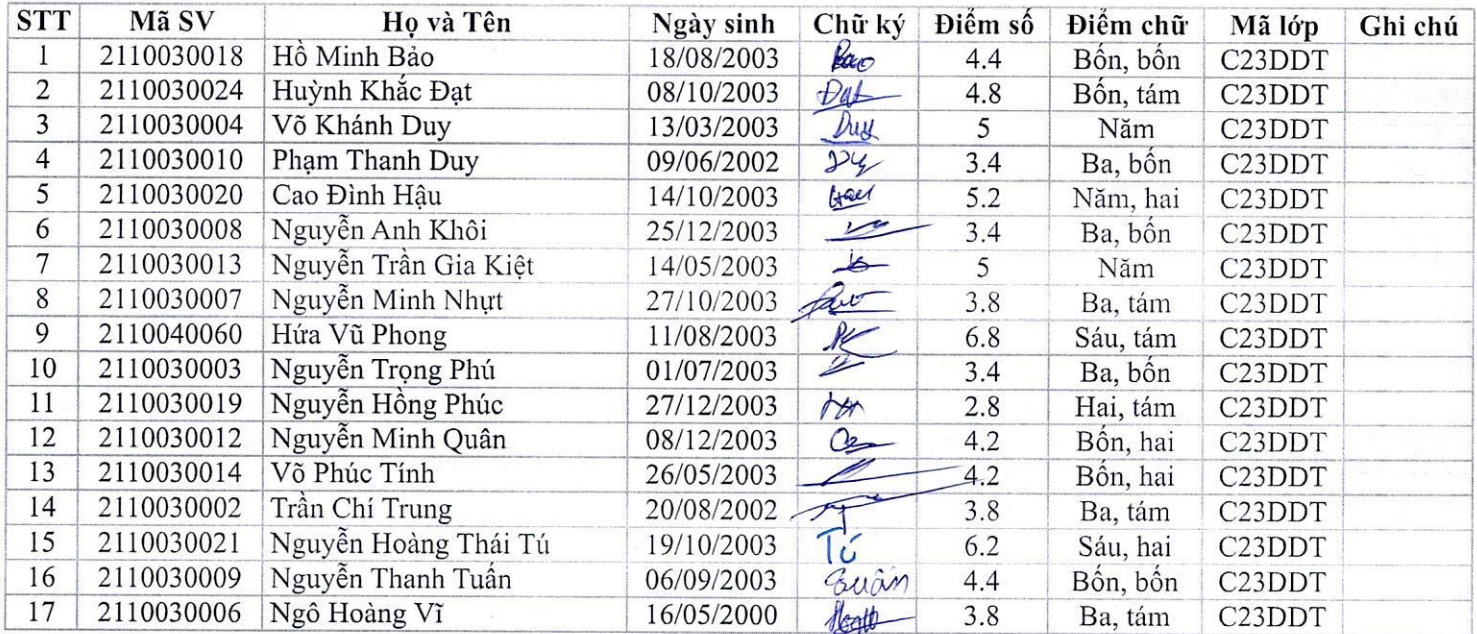 STT Mã SV Họ và Tên Ngày sinh Chữ ký Điểm số Điểm chữ Mã lớp Ghi chú
1 2110030018 Hồ Minh Bảo 18/08/2003 Bao 4.4 Bốn, bốn C23DDT
2 2110030024 Huỳnh Khắc Đạt 08/10/2003 Đạt 4.8 Bốn, tám C23DDT
3 2110030004 Võ Khánh Duy 13/03/2003 Duy 5 Năm C23DDT
4 2110030010 Phạm Thanh Duy 09/06/2002 3.4 Ba, bốn C23DDT
5 2110030020 Cao Đình Hậu 14/10/2003 5.2 Năm, hai C23DDT
6 2110030008 Nguyễn Anh Khôi 25/12/2003 3.4 Ba, bốn C23DDT
7 2110030013 Nguyễn Trần Gia Kiệt 14/05/2003 5 Năm C23DDT
8 2110030007 Nguyễn Minh Nhựt 27/10/2003 3.8 Ba, tám C23DDT
9 2110040060 Hứa Vũ Phong 11/08/2003 6.8 Sáu, tám C23DDT
10 2110030003 Nguyễn Trọng Phú 01/07/2003 3.4 Ba, bốn C23DDT
11 2110030019 Nguyễn Hồng Phúc 27/12/2003 2.8 Hai, tám C23DDT
12 2110030012 Nguyễn Minh Quân 08/12/2003 4.2 Bốn, hai C23DDT
13 2110030014 Võ Phúc Tính 26/05/2003 4.2 Bốn, hai C23DDT
14 2110030002 Trần Chí Trung 20/08/2002 3.8 Ba, tám C23DDT
15 2110030021 Nguyễn Hoàng Thái Tú 19/10/2003 Tú 6.2 Sáu, hai C23DDT
16 2110030009 Nguyễn Thanh Tuấn 06/09/2003 Tuấn 4.4 Bốn, bốn C23DDT
17 2110030006 Ngô Hoàng Vĩ 16/05/2000 3.8 Ba, tám C23DDT